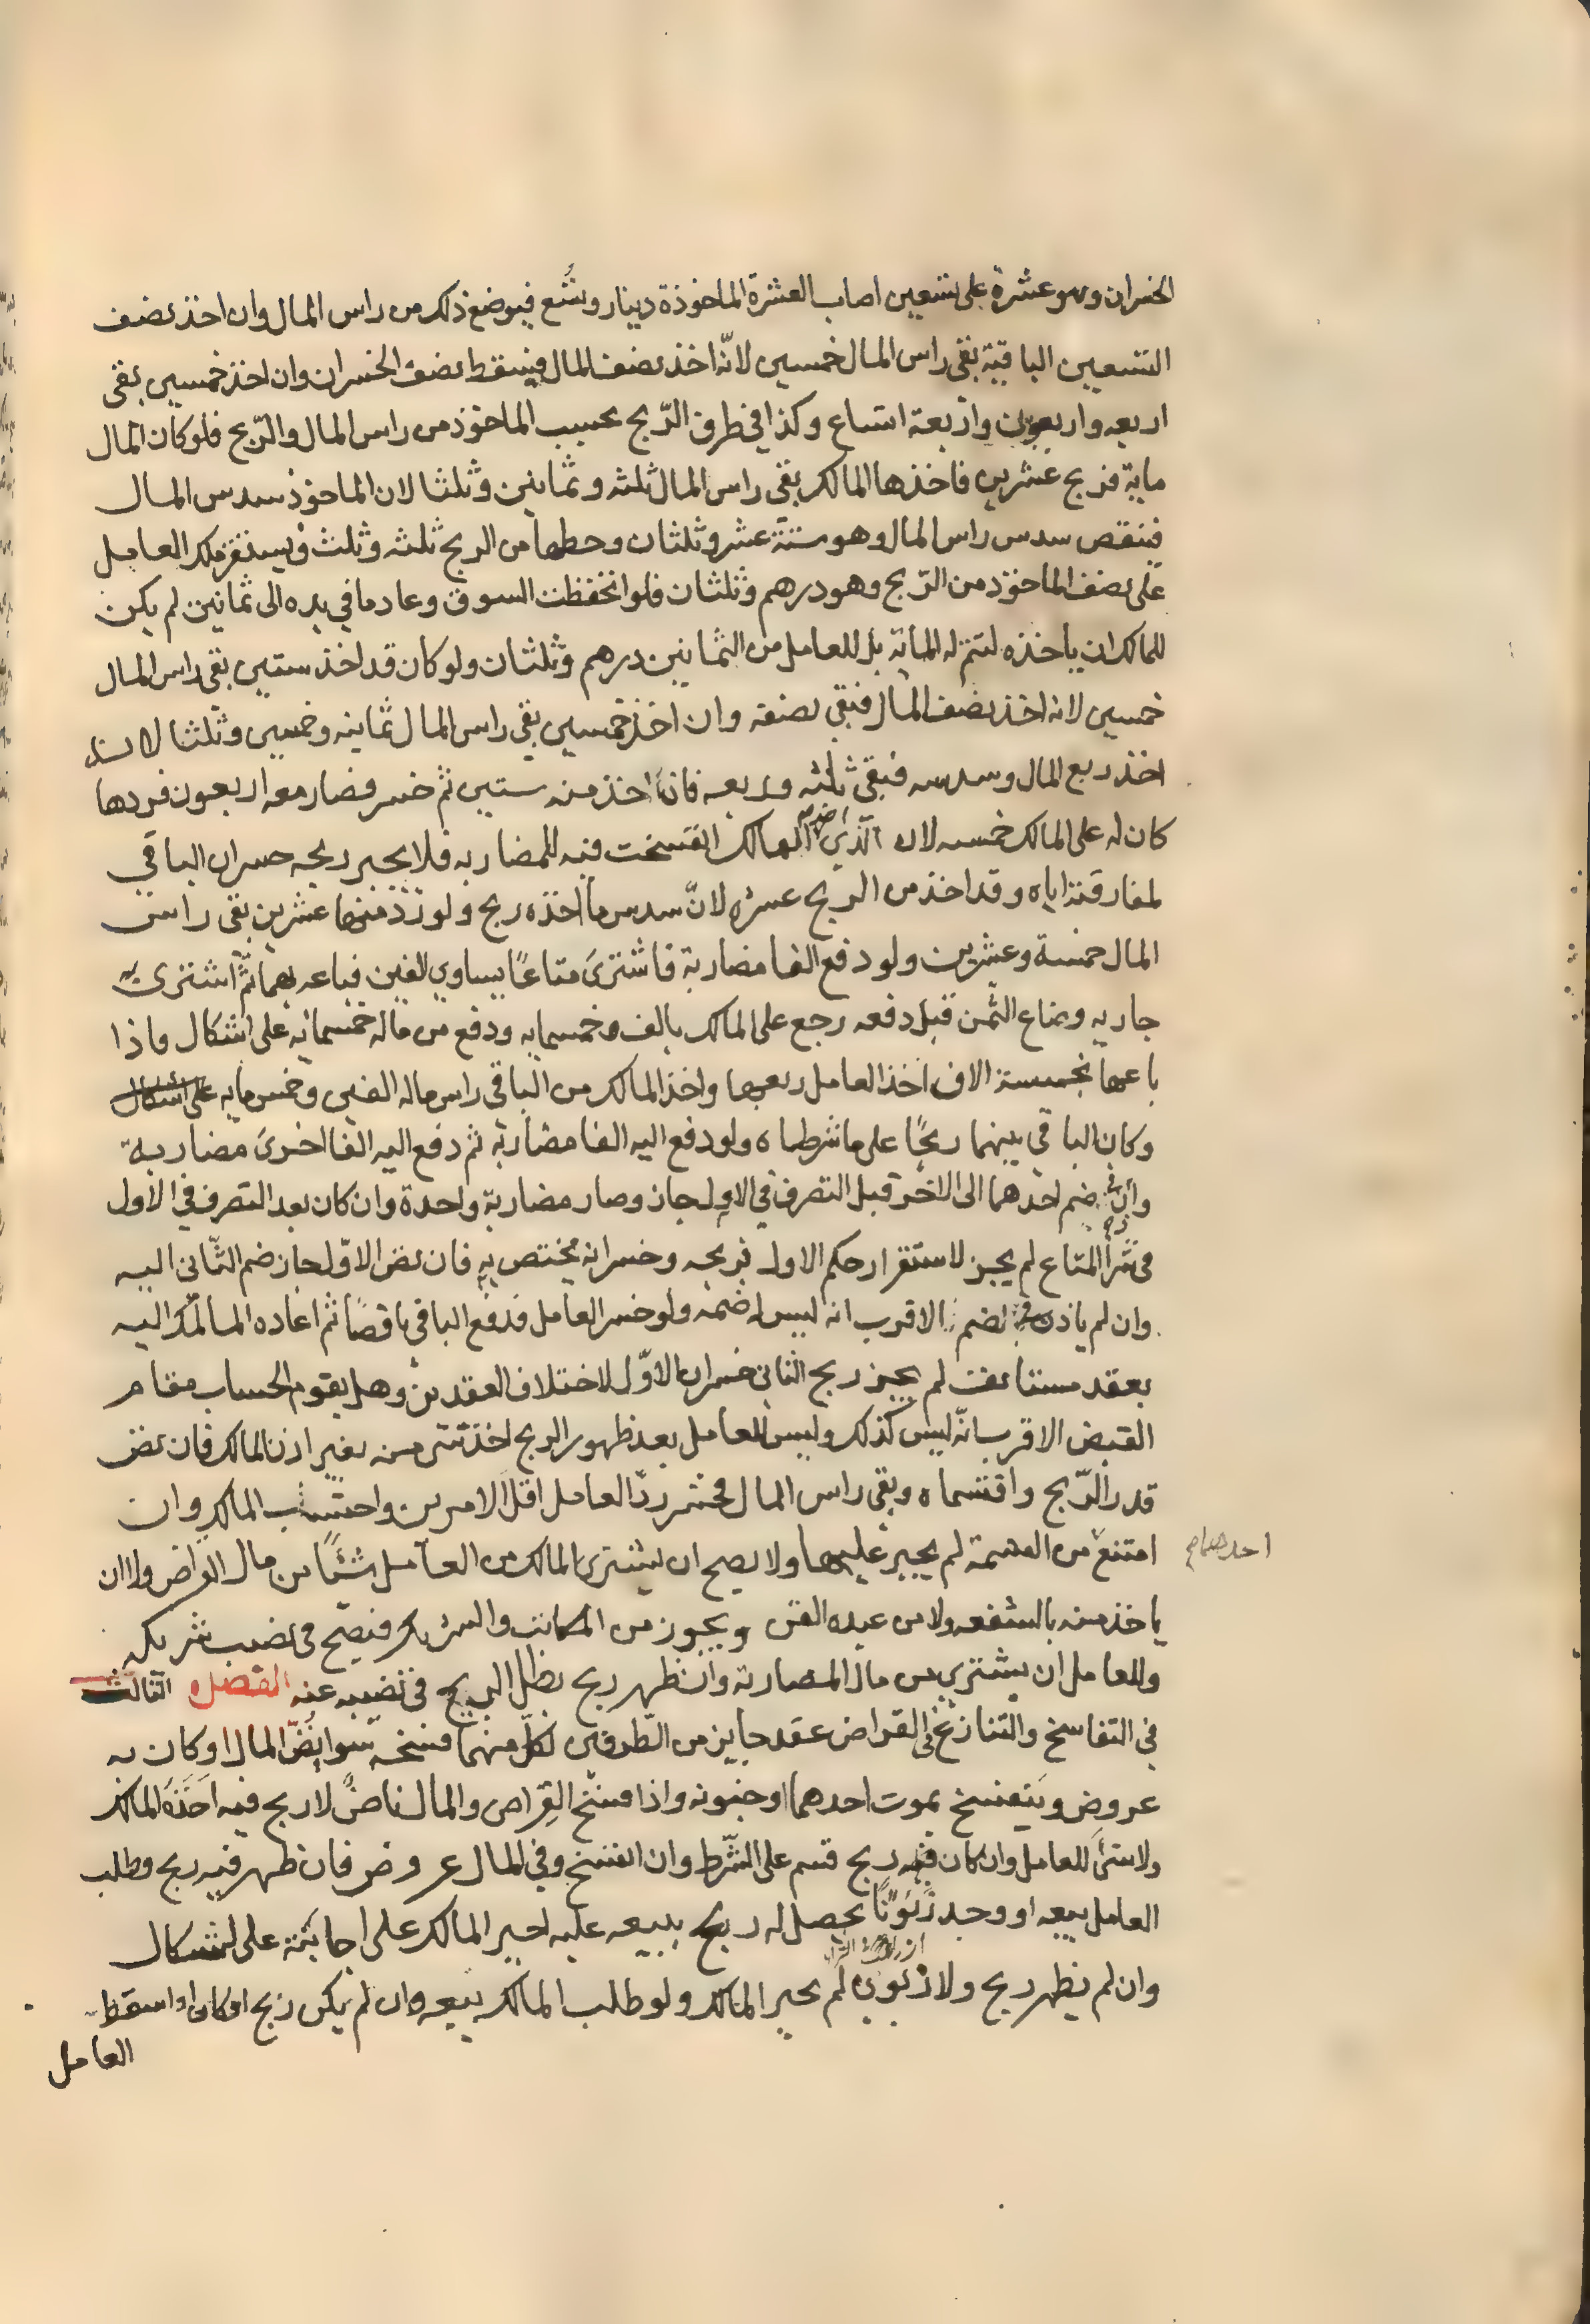 الخسران وهو عشرة على تسعين اصاب العشرة الماخوذة دينار وتُسع فيوضع ذلك من راس المال وان اخذ نصف
التسعين الباقية بقى راس المال خمسين لانّه اخذ نصف المال فيسقط نصف الخسران وان اخذ خمسين بقى
اربعه واربعون واربعة اتساع وكذا في طرف الرّبح بحسب الماخوذ من راس المال والرّبح فلو كان المال
ماية فربح عشرين فاخذها المالك بقى راس المال ثلثه وثمانين وثلثا لان الماخوذ سدس المال
فنقص سدس راس المال وهو ستّة عشر وثلثان وحطها من الربح ثلثه وثلث ويستقر ملك العامل
على نصف الماخوذ من الرّبح وهو درهم وثلثان فلو انخفظت السوق وعاد ما في يده الى ثمانين لم يكن
للمالك ان يأخذه لتتم له المائة بل للعامل من الثمانين درهم وثلثان ولو كان قد اخذ ستين بقى راس المال
خمسين لانه اخذ نصف المال فبقى نصفه وان اخذ خمسين بقى راس المال ثمانيه وخمسين وثلثا لانه
اخذ ربع المال وسدسه فبقى ثلثه وربعه فان اخذ منه ستين ثم خسر فصار معه اربعون فردها
كان له على المالك خمسه لان الذي اخذه المالك انفسخت فيه المضاربه فلا يجبر ربحه خسران الباقي
لمفارقته اياه وقد اخذ من الربح عشره لانّ سدس ما اخذه ربح ولو ردّ منها عشرين بقى راس
المال خمسة وعشرين ولو دفع الفا مضاربة فاشترى متاعًا يساوي الفين فباعه بهما ثمّ اشترى به
جاريه وضاع الثمن قبل دفعه رجع على المالك بالف وخمسمايه ودفع من ماله خمسمائه على اشكال واذا
باعها بخمسة الاف اخذ العامل ربعها واخذ المالك من الباقى راس ماله الفين وخمس مايه على اشكال
وكان الباقى بينهما ربحًا على ما شرطاه ولو دفع اليه الفا مضاربة ثم دفع اليه الفا اخرى مضاربة
واذن في ضم احدهما الى الاخر قبل التصرف في الاول جاز وصار مضاربة واحدة وان كان بعد التصرف في الاول
في شرا المتاع لم يجز لاستقرار حكم الاول فربحه وخسرانه مختص به فان نضّ الاوّل جاز ضم الثّاني اليه
وان لم ياذن في الضم فالاقرب انه ليس له ضمه ولو خسر العامل فدفع الباقي ناقصًا ثم اعاده المالك اليه
بعقد مستانف لم يجبر ربح الثاني خسران الاوّل لاختلاف العقدين وهل يقوم الحساب مقام
القبض الاقرب انّه ليس كذلك وليس للعامل بعد ظهور الربح اخذ شى منه بغير اذن المالك فان نض
قدر الرّبح واقتسماه وبقى راس المال فخسر ردّ العامل اقل الامرين واحتساب المالك وان
امتنع من القسمة لم يجبر عليها ولا يصح ان يشترى المالك من العامل شئًا من مال القراض ولا ان
احدهما
ياخذ منه بالشفعه ولا من عبده القن ويجوز من المكاتب والشريك فيصح في نصيب شريكه
وللعامل ان يشتري من مال المضاربة وان ظهر ربح بطل البيع في نصيبه عنه الفصل الثالث
في التفاسخ والتنازع في القراض عقد جايز من الطّرفين لكلّ منهما فسخه سوا نضّ المال او كان به
عروض وينفسخ بموت احدهما او جنونه واذا فسخ القراض والمال ناضّ لا ربح فيه اخذه المالك
ولا شئ للعامل وان كان فيه ربح قسم على الشّرط وان انفسخ وفي المال عروض فان ظهر فيه ربح وطلب
العامل بيعه او وجد زبونًا يحصل له ربح ببيعه عليه اجبر المالك على اجابته على اشكال
وان لم يظهر ربح ولا زبون لم يجبر المالك ولو طلب المالك بيعه وان لم يكن ربح او كان واسقط
العامل